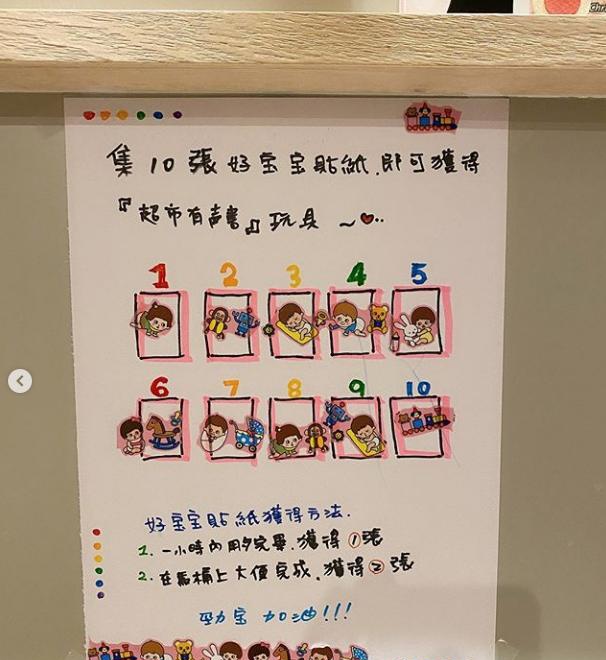 集10張好宝宝貼紙,即可獲得
『超市有声書』玩具~
1 2 3 4 5
6 7 8 9 10
好宝宝貼紙獲得方法.
1. 一小時內用夕完畢.獲得①張
2. 在馬桶上大便完成.獲得②張
宝加油!!!